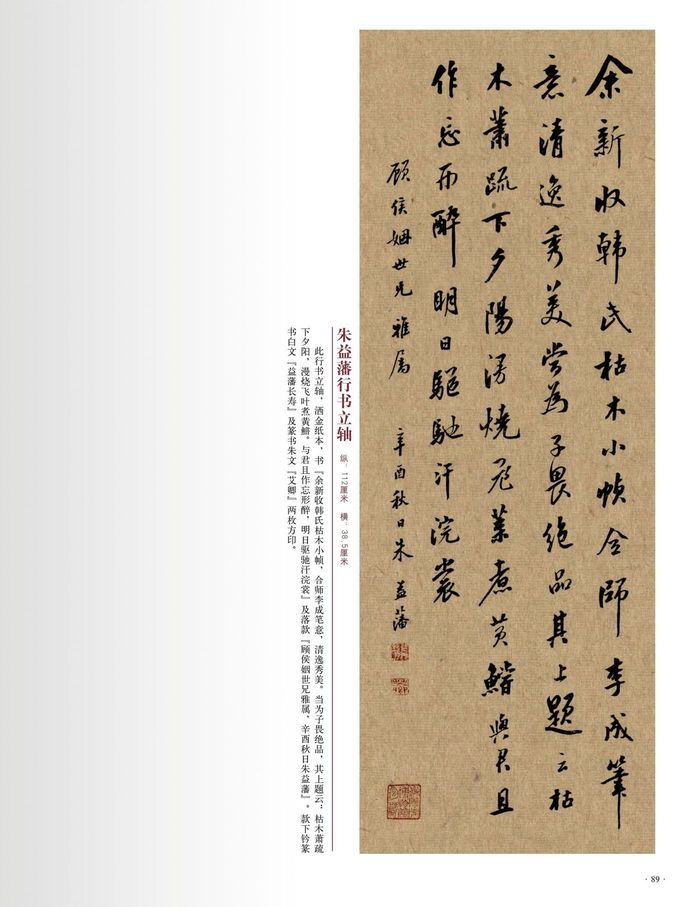 余新收韓氏枯木小幀全師李成筆
意清逸秀美當為子畏絕品其上題云枯
木蕭疏下夕陽漫燒飛葉煮黃鰭與君且
作忘形醉明日驅馳汗浣裳
顧侯姻世兄雅屬 辛酉秋日朱益藩
朱益藩行书立轴 纵：112厘米 横：38.5厘米
此行书立轴，洒金纸本，书『余新收韩氏枯木小帧，合师李成笔意，清逸秀美。当为子畏绝品，其上题云：枯木萧疏
下夕阳，漫烧飞叶煮黄鳍。与君且作忘形醉，明日驱驰汗浣裳』及落款『顾侯姻世兄雅属，辛酉秋日朱益藩』。款下钤篆
书白文『益藩长寿』及篆书朱文『艾卿』两枚方印。
· 89 ·